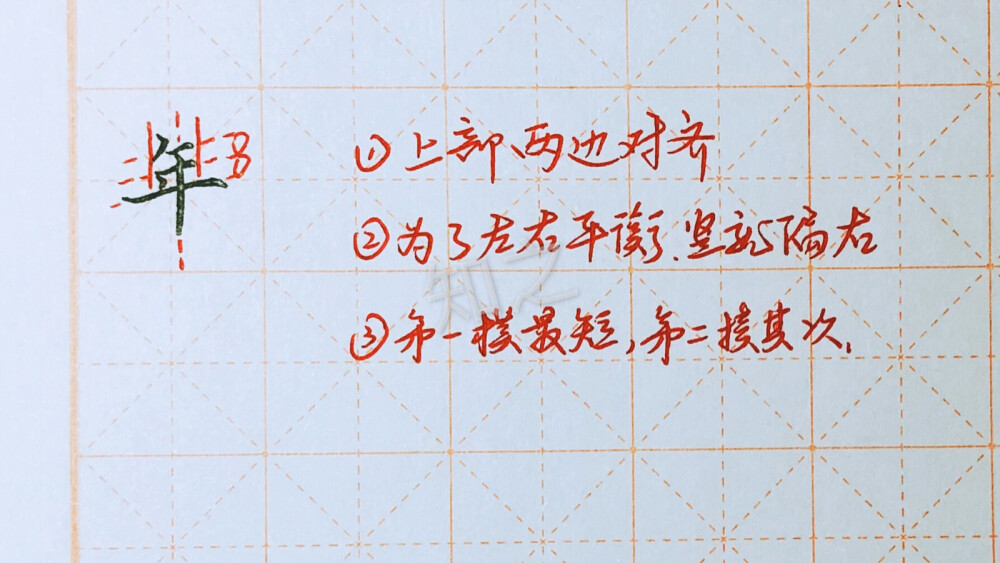 年
①上部、两边对齐
②为了左右平衡、竖画偏右
③第一横最短，第二横其次.
知之